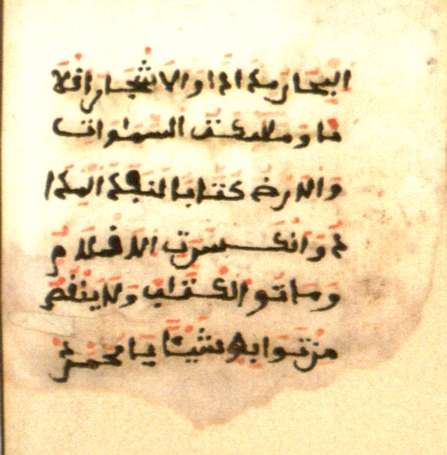 البحار مدادا والاشجار اقلا
ما وملئكت السموات
والارض كتابا لنفد المدا
د وانكسرت الاقلام
وماتو الكتاب ولا ينقص
من ثوابه شيئا يا محمد